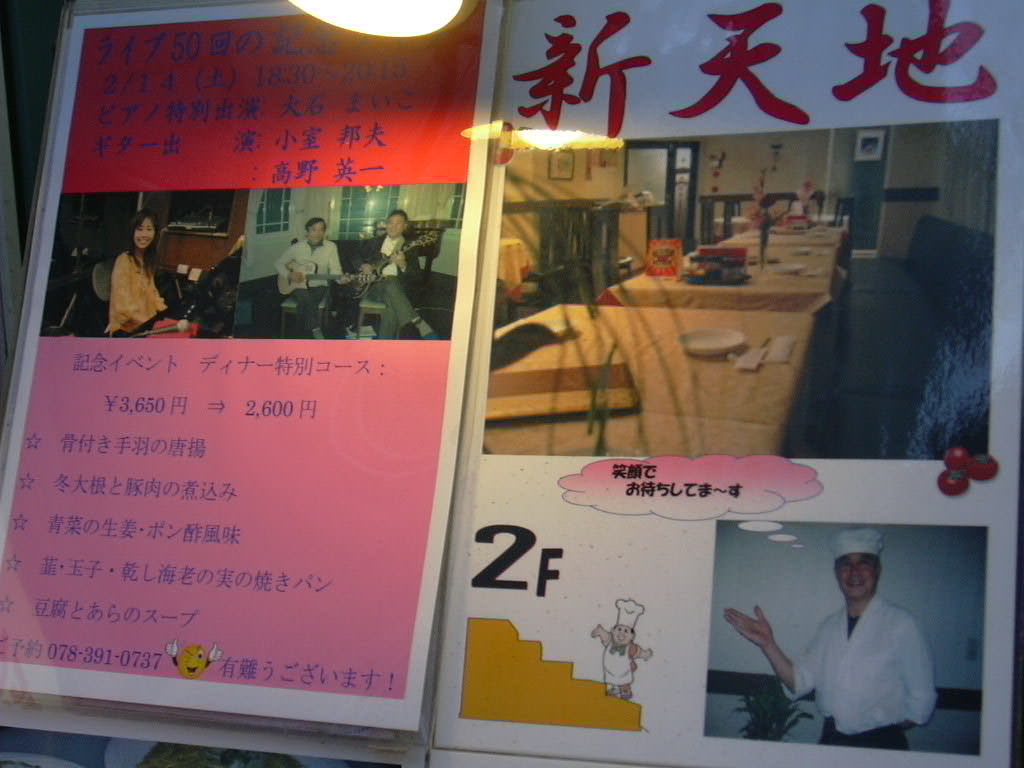 ライブ50回の記念
2/14 (土) 18:30～20:15
ピアノ特別出演: 大石 まいこ
ギター出　演: 小室 邦夫
: 高野 英一
記念イベント ディナー特別コース：
￥3,650円 ⇒ 2,600円
☆ 骨付き手羽の唐揚
☆ 冬大根と豚肉の煮込み
☆ 青菜の生姜・ポン酢風味
☆ 韮・玉子・乾し海老の実の焼きパン
☆ 豆腐とあらのスープ
ご予約 078-391-0737 有難うございます！
新天地
笑顔で
お待ちしてま～す
2F